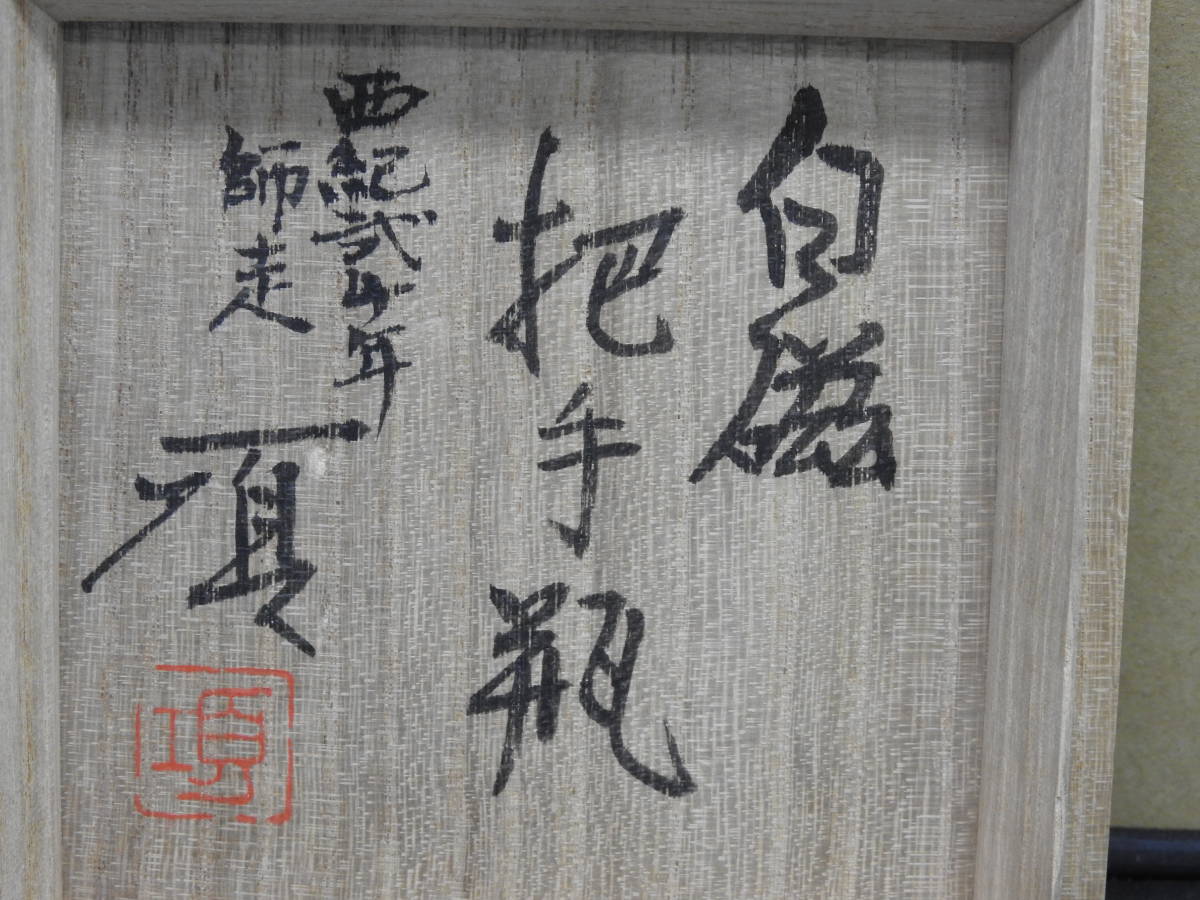 白磁
把手瓶
西紀弐千年
師走
項
項